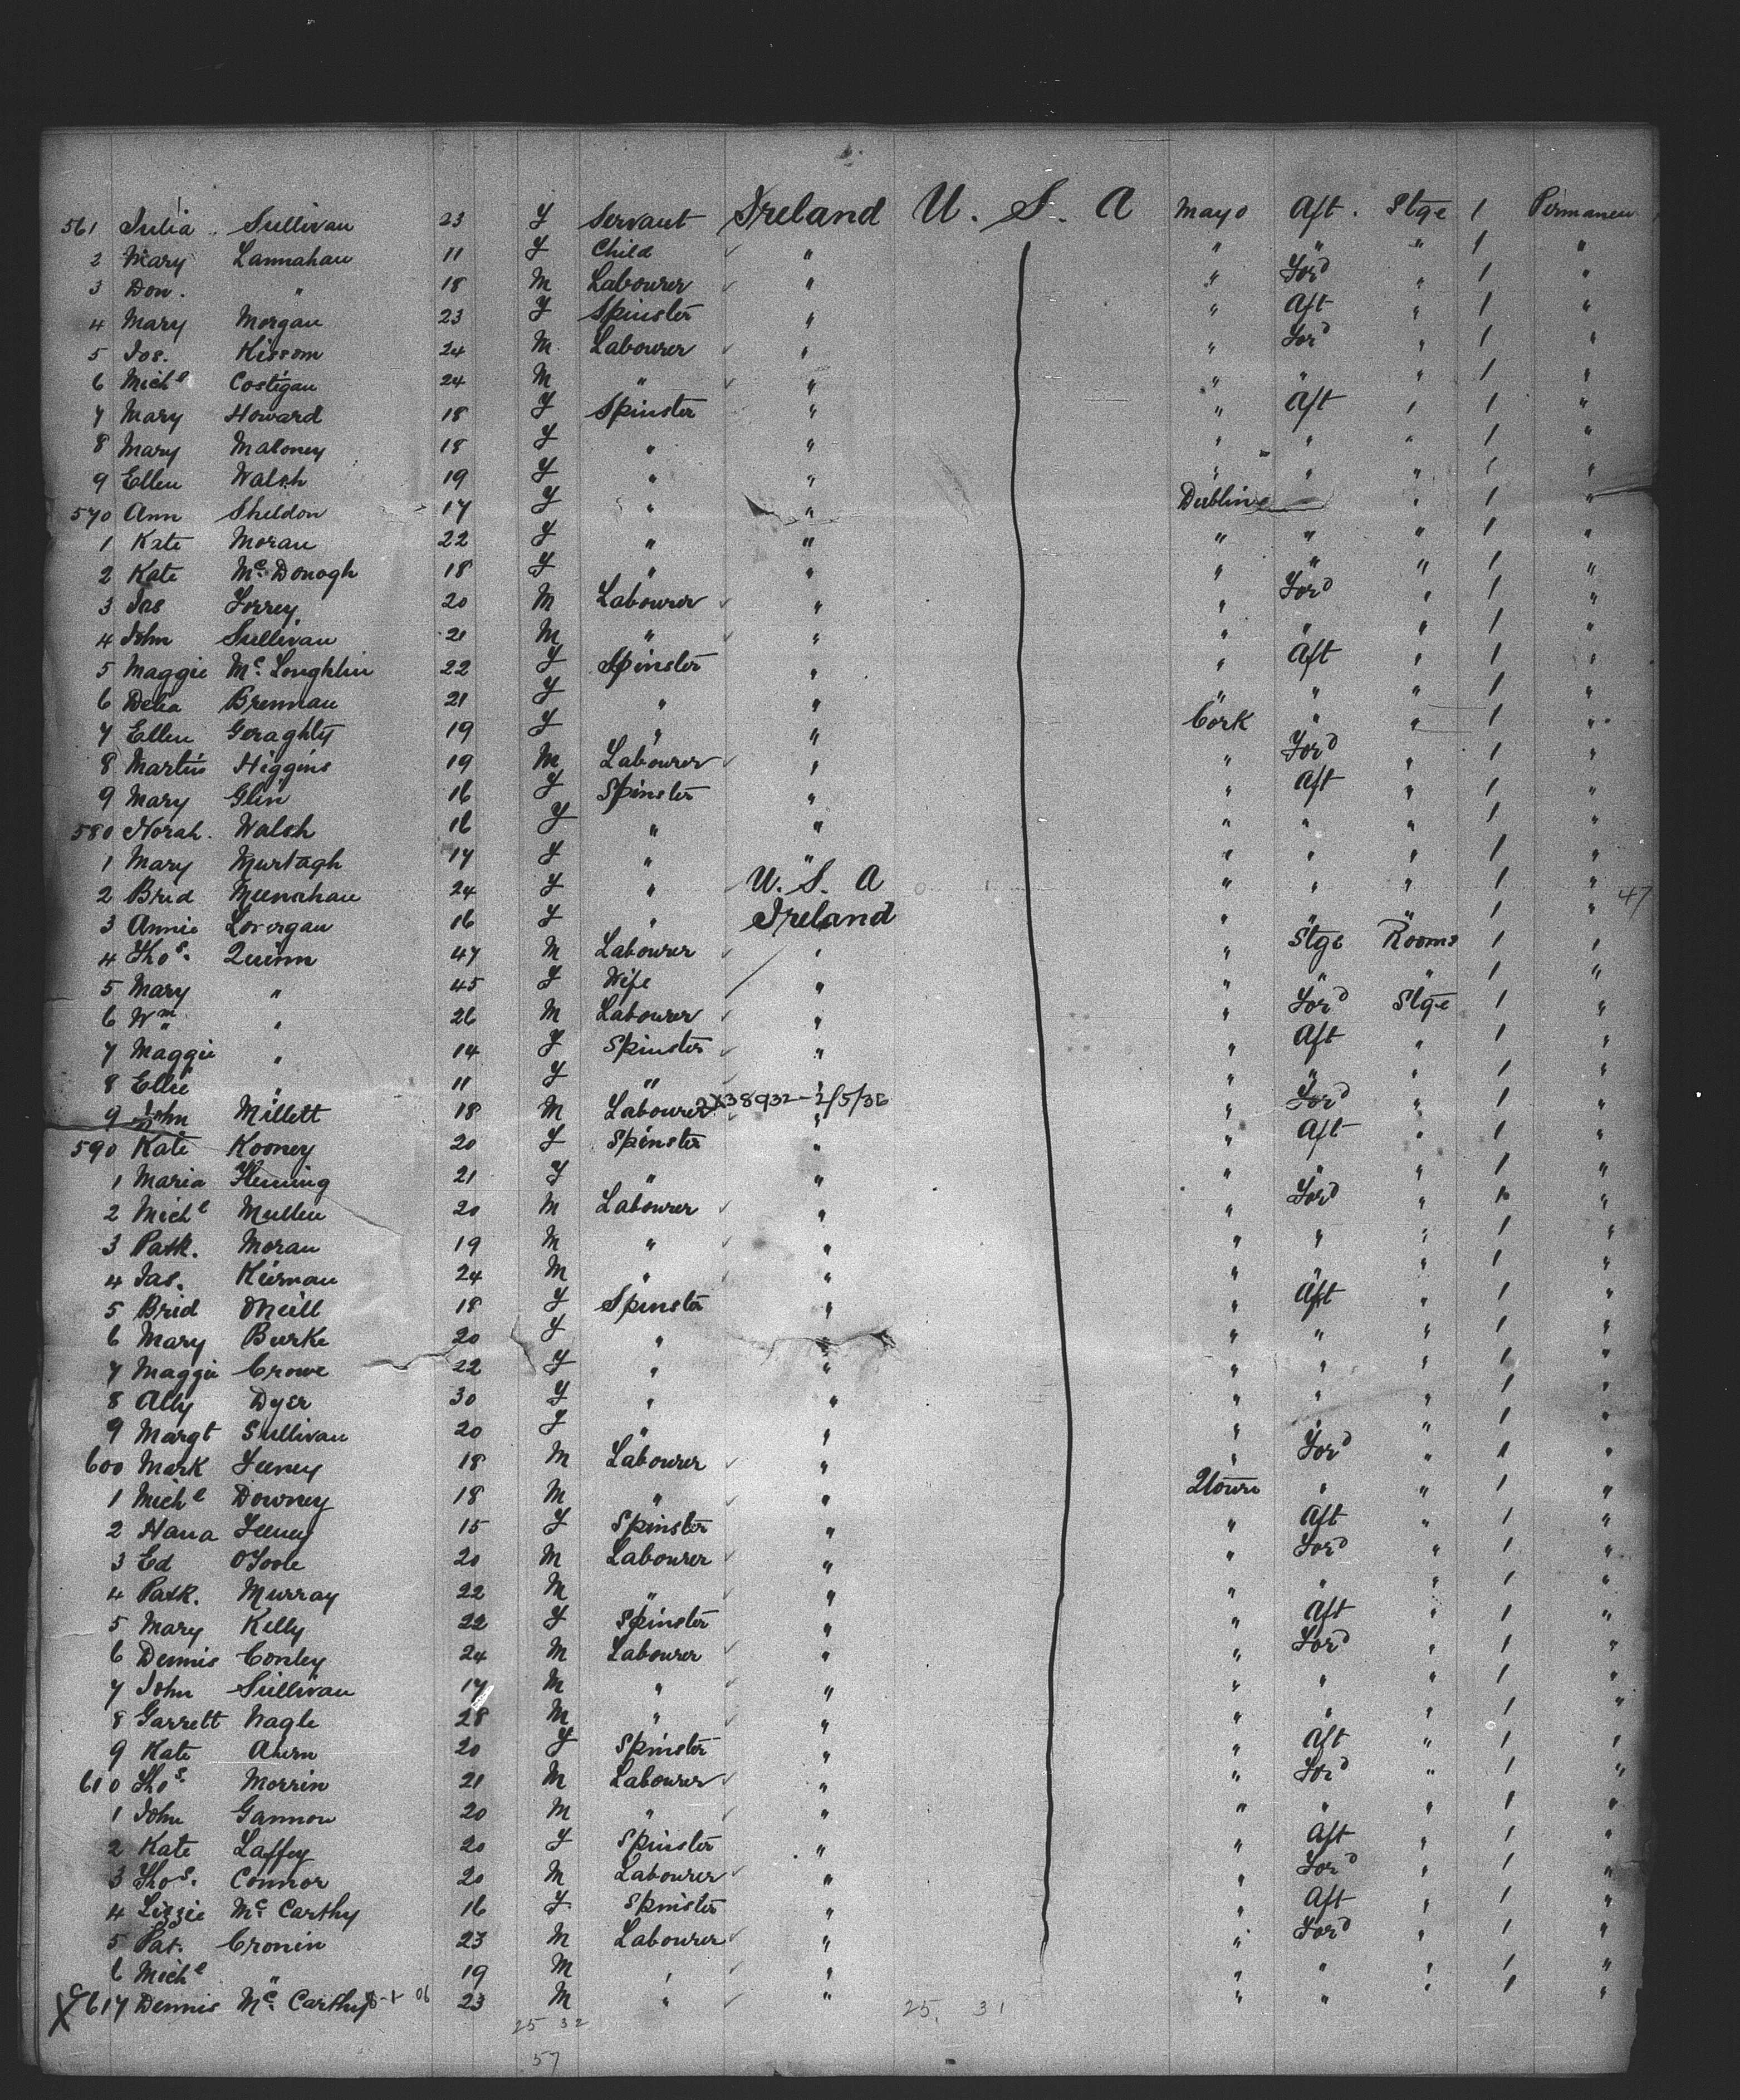 561 Julia Sullivan 23 F Servant Ireland U. S. A Mayo Aft. Stge 1 Permanen
2 Mary Lannahan 11 F Child " " " " 1 "
3 Don. " 18 M Labourer " " Ford " 1 "
4 Mary Morgan 23 F Spinster " " Aft " 1 "
5 Jos. Kissom 24 M Labourer " " Ford " 1 "
6 Michl Costigan 24 M " " " " " 1 "
7 Mary Howard 18 F Spinster " " Aft " 1 "
8 Mary Maloney 18 F " " " " " 1 "
9 Ellen Walsh 19 F " " " " " 1 "
570 Ann Sheldon 17 F " " Dublin " 1 "
1 Kate Moran 22 F " " " " " 1 "
2 Kate Mc Donogh 18 F " " " " " 1 "
3 Jas Forrey 20 M Labourer " " Ford " 1 "
4 John Sullivan 21 M " " " " " 1 "
5 Maggie Mc Loughlin 22 F Spinster " " Aft " 1 "
6 Delia Brennan 21 F " " " " " 1 "
7 Ellen Geraghty 19 F " " Cork " " 1 "
8 Martin Higgins 19 M Labourer " " Ford " 1 "
9 Mary Glin 16 F Spinster " " Aft " 1 "
580 Norah Walsh 16 F " " " " " 1 "
1 Mary Murtagh 17 F " " " " " 1 "
2 Brid Meenahan 24 F " U. S. A " " " 1 " 47
3 Annie Lonergan 16 F " Ireland " " " 1 "
4 Thos. Quinn 47 M Labourer " " Stge Rooms 1 "
5 Mary " 45 F Wife " " " " 1 "
6 Wm " 26 M Labourer " " Ford Stge 1 "
7 Maggie " 14 F Spinster " " Aft " 1 "
8 Ellie " 11 F " " " " " 1 "
9 John Millett 18 M Labourer 2X38932-2/5/3 " " Ford " 1 "
590 Kate Kooney 20 F Spinster " " Aft " 1 "
1 Maria Fleming 21 F " " " " " 1 "
2 Michl Mullen 20 M Labourer " " Ford " 1 "
3 Patk. Moran 19 M " " " " " 1 "
4 Jas. Kiernan 24 M " " " " " 1 "
5 Brid ONeill 18 F Spinster " " Aft " 1 "
6 Mary Burke 20 F " " " " " 1 "
7 Maggie Crowe 22 F " " " " " 1 "
8 Ally Dyer 30 F " " " " " 1 "
9 Margt Sullivan 20 F " " " " " 1 "
600 Mark Feeney 18 M Labourer " " Ford " 1 "
1 Michl Downey 18 M " " " " 1 "
2 Hana Feeney 15 F Spinster " " Aft " 1 "
3 Ed OToole 20 M Labourer " " Ford " 1 "
4 Patk. Murray 22 M " " " " " 1 "
5 Mary Kelly 22 F Spinster " " Aft " 1 "
6 Dennis Conley 24 M Labourer " " Ford " 1 "
7 John Sullivan 17 M " " " " " 1 "
8 Garrett Nagle 28 M " " " " " 1 "
9 Kate Ahern 20 F Spinster " " Aft " 1 "
610 Thos. Morrin 21 M Labourer " " Ford " 1 "
1 John Gannon 20 M " " " " " 1 "
2 Kate Laffey 20 F Spinster " " Aft " 1 "
3 Thos. Connor 20 M Labourer " " Ford " 1 "
4 Lizzie Mc Carthy 16 F Spinster " " Aft " 1 "
5 Pat. Cronin 23 M Labourer " " Ford " 1 "
6 Michl " 19 M " " " " " 1 "
X 617 Dennis Mc Carthy 8-1 06 23 M " " " " 1 "
25 31
25 32
57